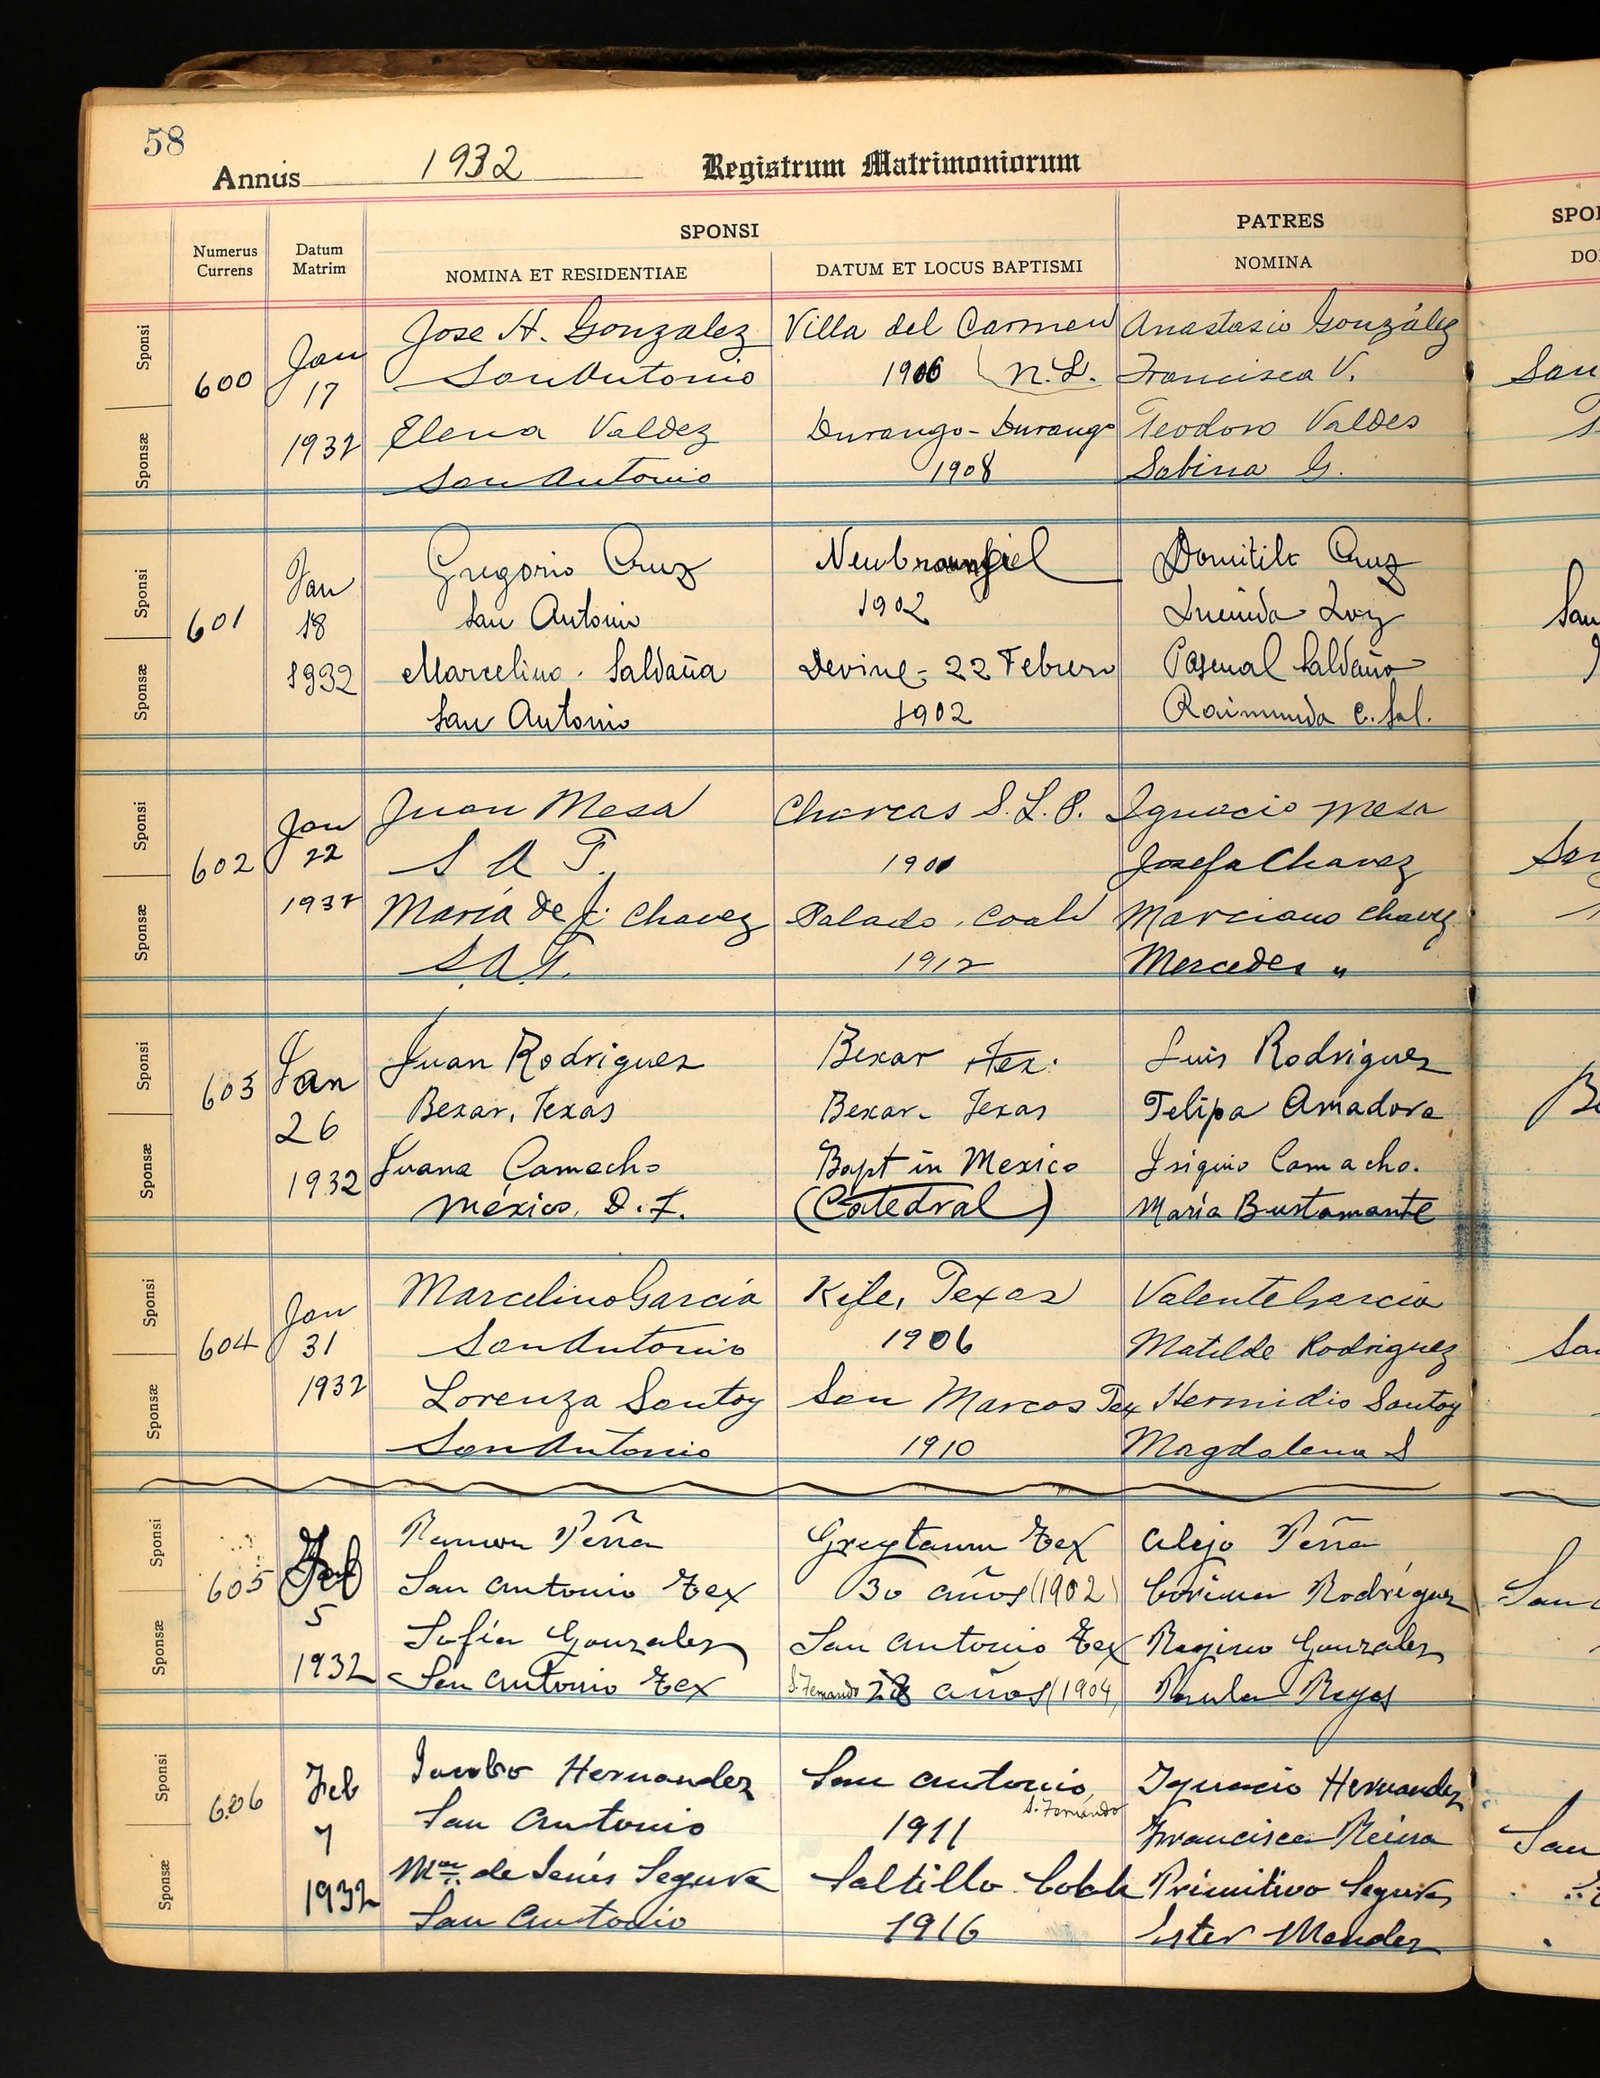 58
Annus 1932 Registrum Matrimoniorum
Numerus Currens
Datum Matrim
SPONSI
NOMINA ET RESIDENTIAE
DATUM ET LOCUS BAPTISMI
PATRES
NOMINA
SPO
DO
Sponsi
Sponsæ
600
Jan
17
1932
Jose H. Gonzalez Villa del Carmen Anastasio González
San Antonio 1906 N.L. Francisca V.
San
Elena Valdez Durango - Durango Teodoro Valdes
San Antonio 1908 Sabina G.
Sponsi
Sponsæ
601
Jan
18
1932
Gregorio Cruz Newbraunfiel Domitilo Cruz
San Antonio 1902
San
Marcelina Saldaña Devine, 22 Febrero Pascual Saldaña
San Antonio 1902 Raimunda C. Sal.
Sponsi
Sponsæ
602
Jan
22
1932
Juan Mesa Charcas S.L.P. Ignacio Mesa
S A T. 1901 Josefa Chavez
San
María de J. Chavez Palado, Coah Marciano Chavez
S.A.T. 1912 Mercedes "
Sponsi
Sponsæ
603
Jan
26
1932
Juan Rodriguez Bexar Tex. Luis Rodriguez
Bexar, Texas Bexar - Texas Felipa Amadora
Be
Juana Camacho Bapt in Mexico Isiquio Camacho.
México, D.F. (Catedral) María Bustamante
Sponsi
Sponsæ
604
Jan
31
1932
Marcelino Garcia Kyle, Texas Valente Garcia
San Antonio 1906 Matilde Rodriguez
San
Lorenza Santoy San Marcos Tex Hermidio Santoy
San Antonio 1910 Magdalena S
Sponsi
Sponsæ
605
Feb
5
1932
Ramon Peña Greytawn Tex Alejo Peña
San Antonio Tex 30 años (1902) Corina Rodríguez
San
Sofía Gonzalez San Antonio Tex Regino Gonzalez
San Antonio Tex S. Fernando 28 años (1904) Paula Reyes
Sponsi
Sponsæ
606
Feb
7
1932
Jacobo Hernandez San Antonio Ignacio Hernandez
S. Fernando
San Antonio 1911 Francisca Reina
San
Ma. de Jesús Segura Saltillo Coah Primitivo Segura
San Antonio 1916 Ester Mendez